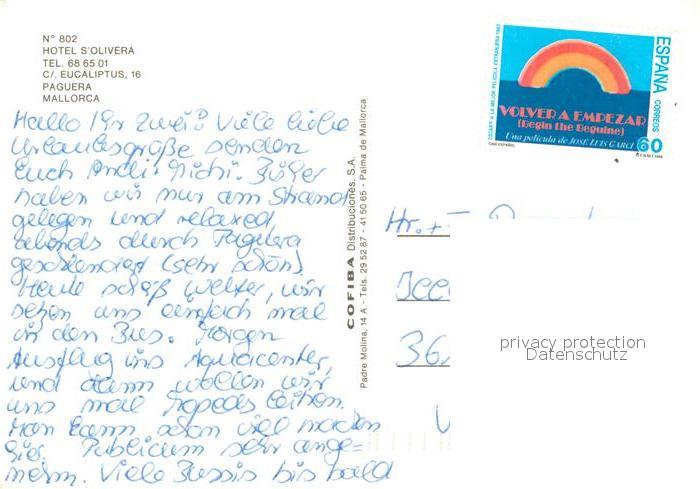 N° 802
HOTEL S'OLIVERA
TEL. 68 65 01
C/. EUCALIPTUS, 16
PAGUERA
MALLORCA
Hallo Ihr zwei! Viele liebe
Urlaubsgrüße senden
Euch Andi + Michi. Bisher
haben wir nur am Strand
gelegen und relaxed,
abends durch Paguera
geschlendert (sehr schön).
Heute scheiß Wetter, wir
setzen uns einfach mal
in den Bus. Morgen
Ausflug ins Aquacenter,
und dann wollen wir
uns mal Mopeds leihen.
Man kann schon viel machen
hier. Publicum sehr ange=
nehm. Viele Bussis bis bald
COFIBA Distribuciones, S.A.
Padre Molina, 14 A - Tels. 29 52 87 - 41 50 65 - Palma de Mallorca
OSCAR A LA MEJOR PELICULA EXTRANJERA 1983
ESPAÑA
CORREOS
VOLVER A EMPEZAR
(Begin the Beguine)
Una película de JOSÉ LUIS GARCI
CINE ESPAÑOL
60
Hr. +
36
privacy protection
Datenschutz